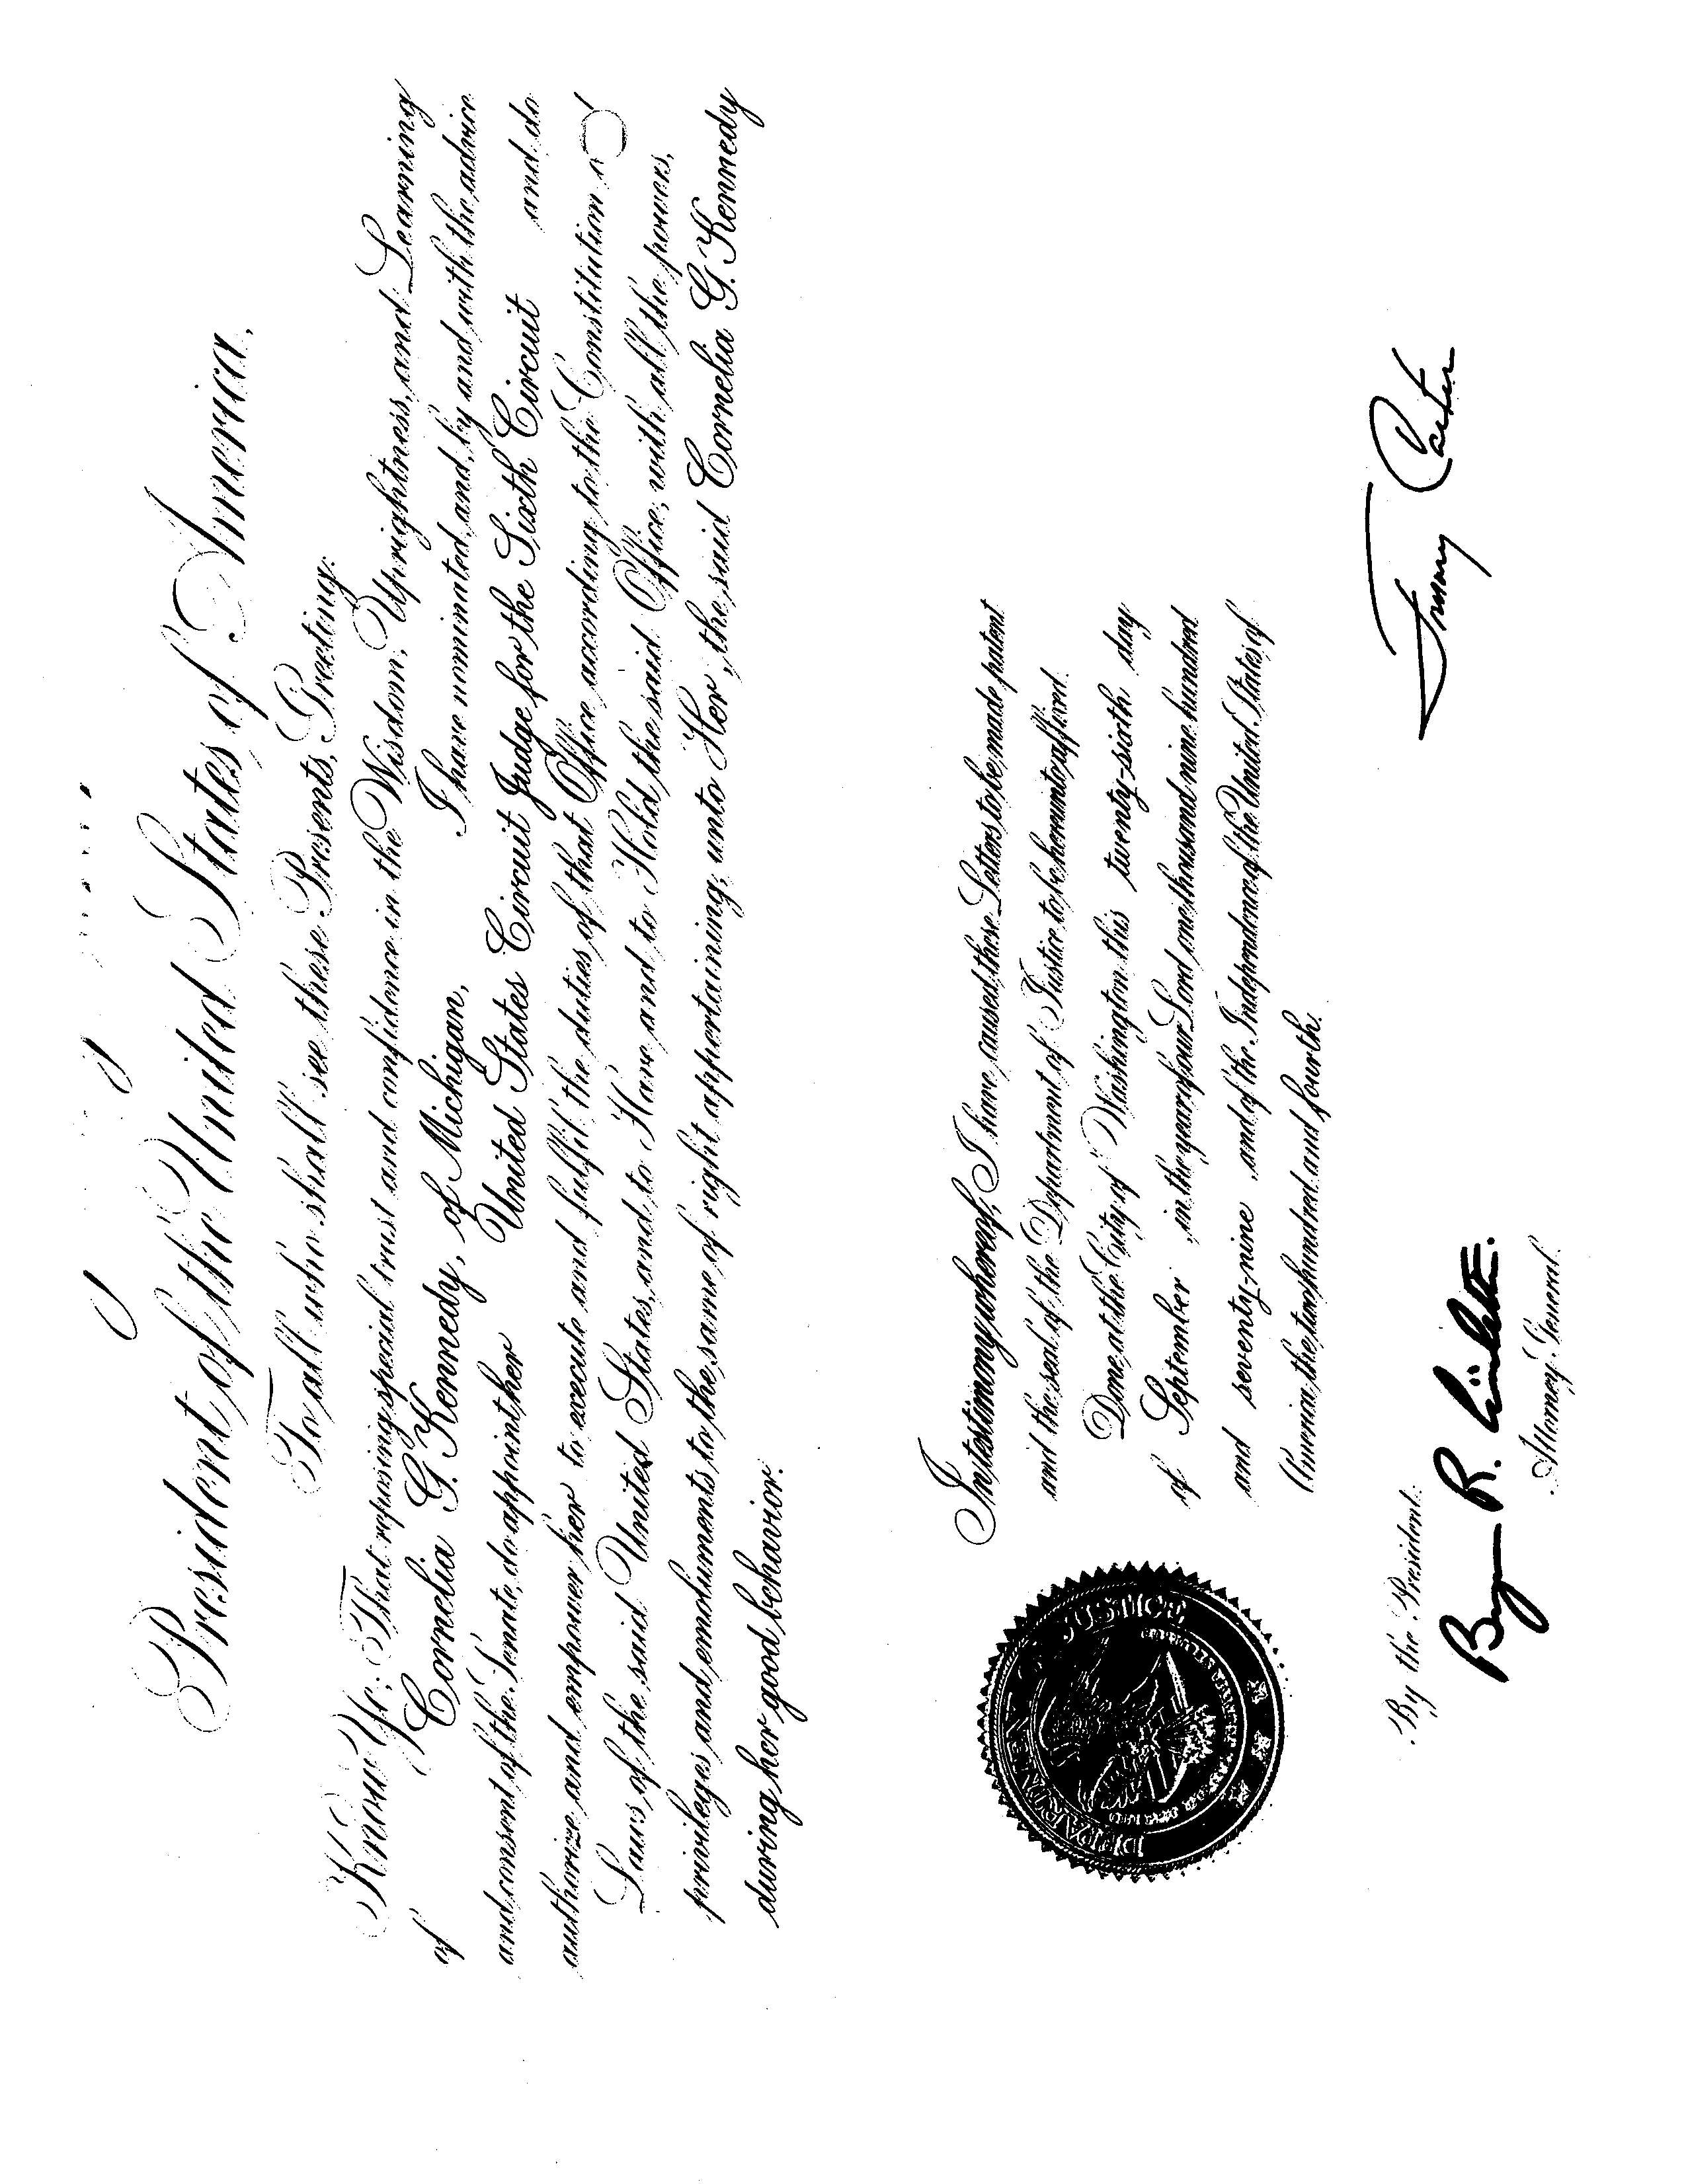 President of the United States of America,
To all who shall see these Presents, Greeting:
Know Ye; That reposing special trust and confidence in the Wisdom, Uprightness, and Learning
of Cornelia G. Kennedy, of Michigan, I have nominated, and, by and with the advice
and consent of the Senate, do appoint her United States Circuit Judge for the Sixth Circuit and do
authorize and empower her to execute and fulfil the duties of that Office according to the Constitution
Laws of the said United States, and to Have and to Hold the said Office, with all the powers,
privileges and emoluments to the same of right appertaining, unto Her, the said Cornelia G. Kennedy
during her good behavior.
In testimony whereof, I have caused these Letters to be made patent
and the seal of the Department of Justice to be hereunto affixed.
Done at the City of Washington this twenty-sixth day
of September in the year of our Lord one thousand nine hundred
and seventy-nine and of the Independence of the United States of
America the two hundred and fourth.
DEPARTMENT JUSTICE
Jimmy Carter
By the President:
Benjamin R. Civiletti
Attorney General.